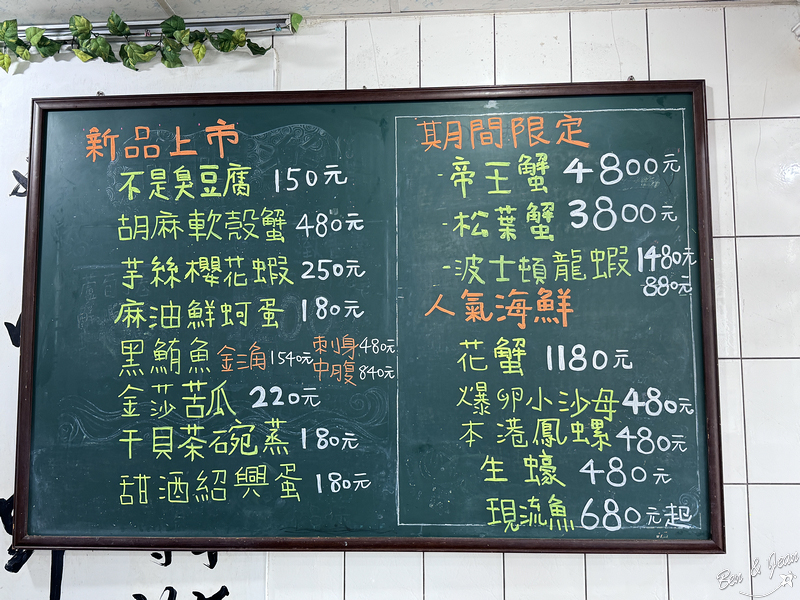 新品上市
不是臭豆腐 150元
胡麻軟殼蟹 480元
芋絲櫻花蝦 250元
麻油鮮蚵蛋 180元
黑鮪魚 金三角 1540元 刺身 480元
中腹 840元
金莎苦瓜 220元
干貝茶碗蒸 180元
甜酒紹興蛋 180元
期間限定
-帝王蟹 4800元
-松葉蟹 3800元
-波士頓龍蝦 1480元
880元
人氣海鮮
花蟹 1180元
爆卵小沙母 480元
本港鳳螺 480元
生蠔 480元
現流魚 680元起
Ben & Jean